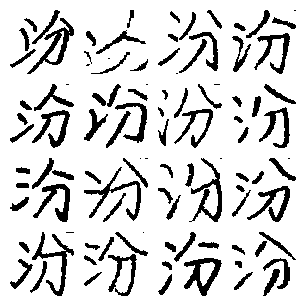 汾汾汾汾
汾汾汾汾
汾汾汾汾
汾汾汾汾